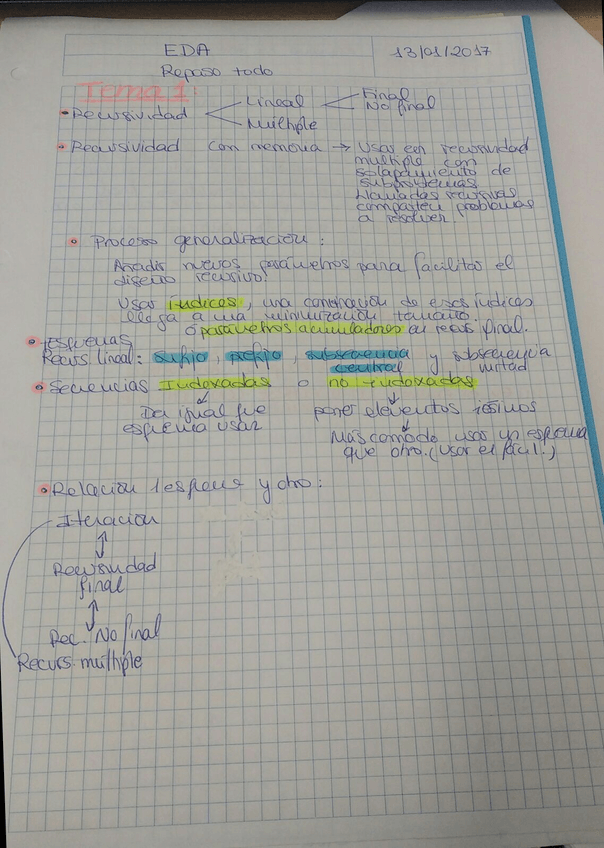 EDA
13/01/2017
Repaso todo
Tema 1:
• Recursividad
Lineal
Final
No final
Múltiple
• Recursividad con memoria → Usar en recursividad
múltiple con
solapamiento de
subproblemas
llamadas recursivas
comparten problemas
a resolver.
• Proceso generalización:
Añadir nuevos parámetros para facilitar el
diseño recursivo.
Usar índices, una combinación de esos índices
llega a una minimización tamaño.
o parámetros acumuladores en recurs final.
• Esquemas
Recurs lineal: sufijo, prefijo, subsecuencia y subsecuencia
central mitad
• Secuencias Indexadas o no indexadas
Da igual que
esquema usar
poner elementos
Más cómodo usar un esquema
que otro. (Usar el fácil!)
• Relación 1 esquema y otro:
Iteración
Recursividad
final
Rec. No final
Recurs. múltiple